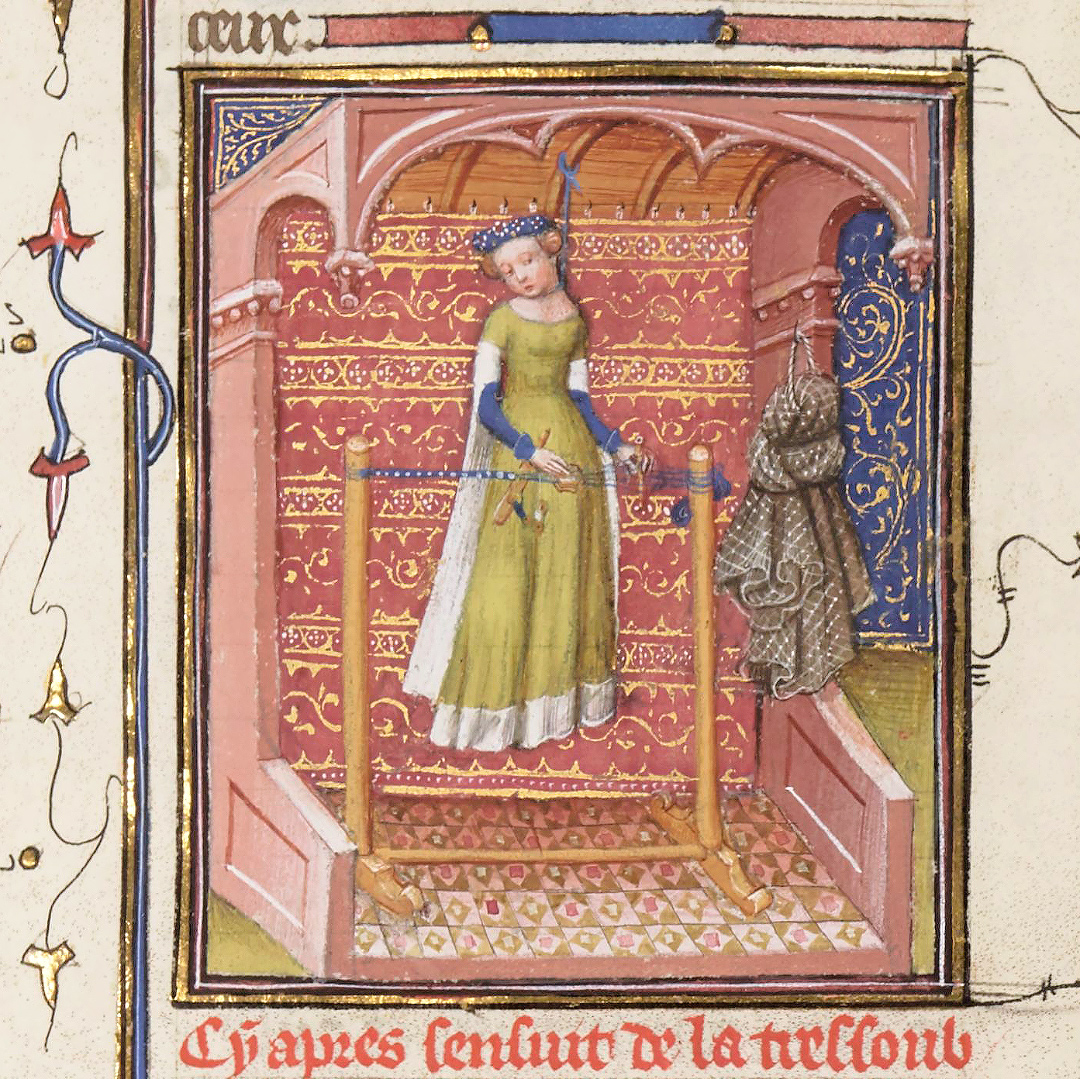 ceux.
Cy apres sensuit de la tressoub